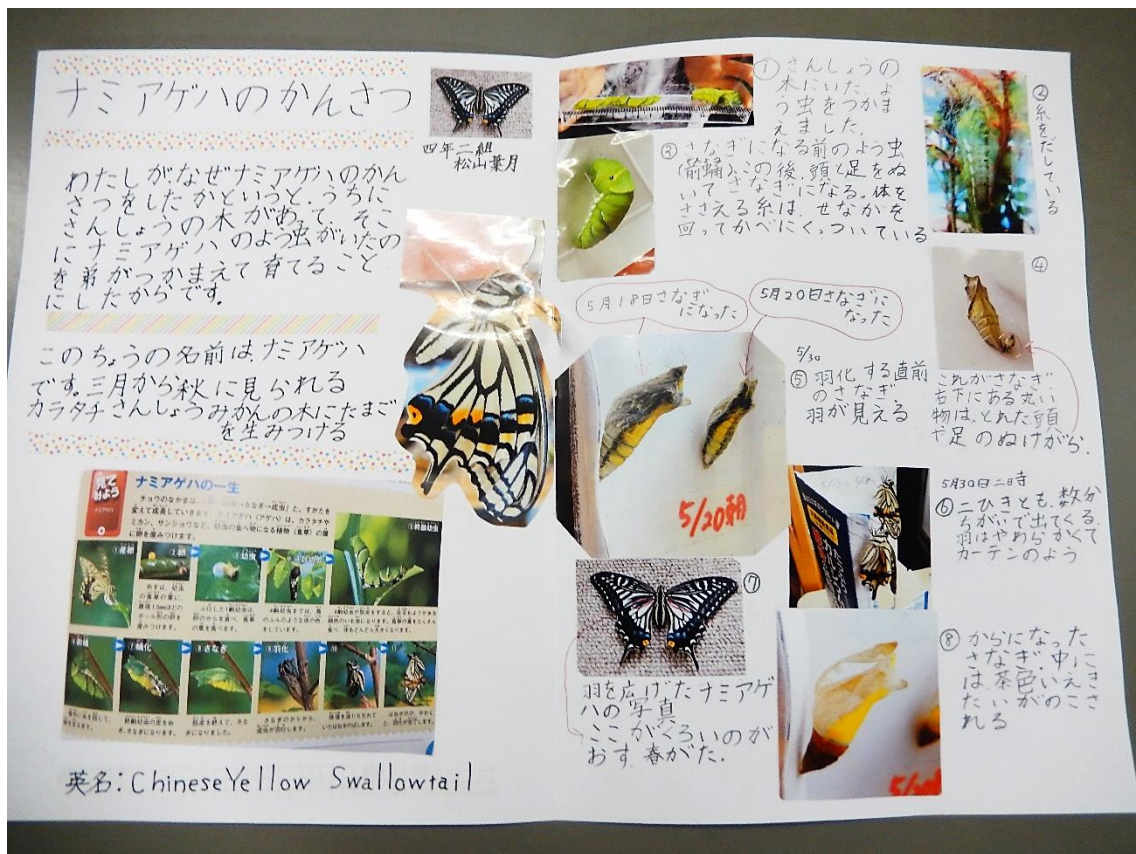 ナミアゲハのかんさつ
四年二組
松山葉月
わたしがなぜナミアゲハのかん
さつをしたかというと、うちに
さんしょうの木があって、そこ
にナミアゲハのよう虫がいたの
を弟がつかまえて育てること
にしたからです。
このちょうの名前は、ナミアゲハ
です。三月から秋に見られる
カラタチさんしょうみかんの木にたまご
を生みつける
見て
みよう
ナミアゲハ
ナミアゲハの一生
チョウのなかまは、
変えて成長していきます。ナミアゲハ(アゲハ)は、カラタチや
ミカン、サンショウなど、幼虫の食べ物になる植物(食草)の葉
に卵を産みつけます。
①産卵
②卵
③幼虫
⑤終齢幼虫
⑦蛹化
⑧さなぎ
⑨羽化
⑩
⑪
英名:ChineseYellow Swallowtail
①さんしょうの
木にいた、よ
う虫をつかま
えました。
②糸をだしている
③さなぎになる前のよう虫
(前蛹)、この後、頭と足をぬ
いてさなぎになる。体を
ささえる糸は、せなかを
回ってかべにくっついている
④
これがさなぎ、
右下にある丸い
物は、とれた頭
や足のぬけがら。
5月18日さなぎ
になった
5月20日さなぎに
なった
5/20朝
5/30
⑤羽化する直前
のさなぎ
羽が見える
5月30日二時
⑥二ひきとも、数分
ちがいで出てくる
羽はやわらかくて
カーテンのよう
⑦
羽を広げたナミアゲ
ハの写真
ここがくろいのが
おす、春がた。
⑧からになった
さなぎ、中に
は、茶色いえき
たいがのこさ
れる